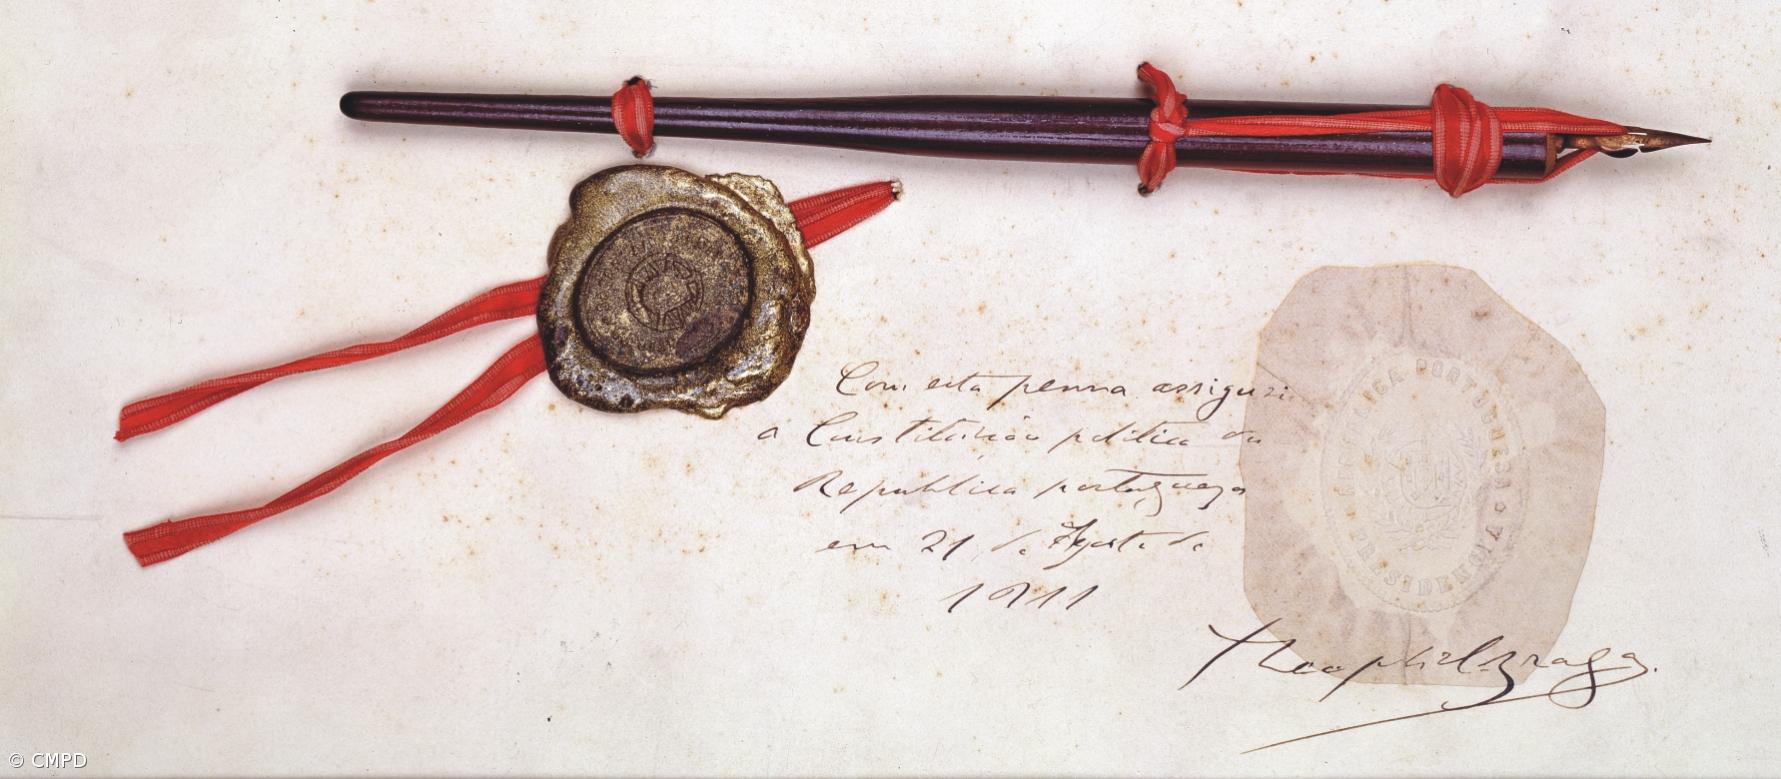 Com esta penna assignei
a Constituição politica da
Republica portugueza
em 21 de Agosto de
1911
REPUBLICA PORTUGUESA
PRESIDENCIA
Theophilo Braga.
© CMPD